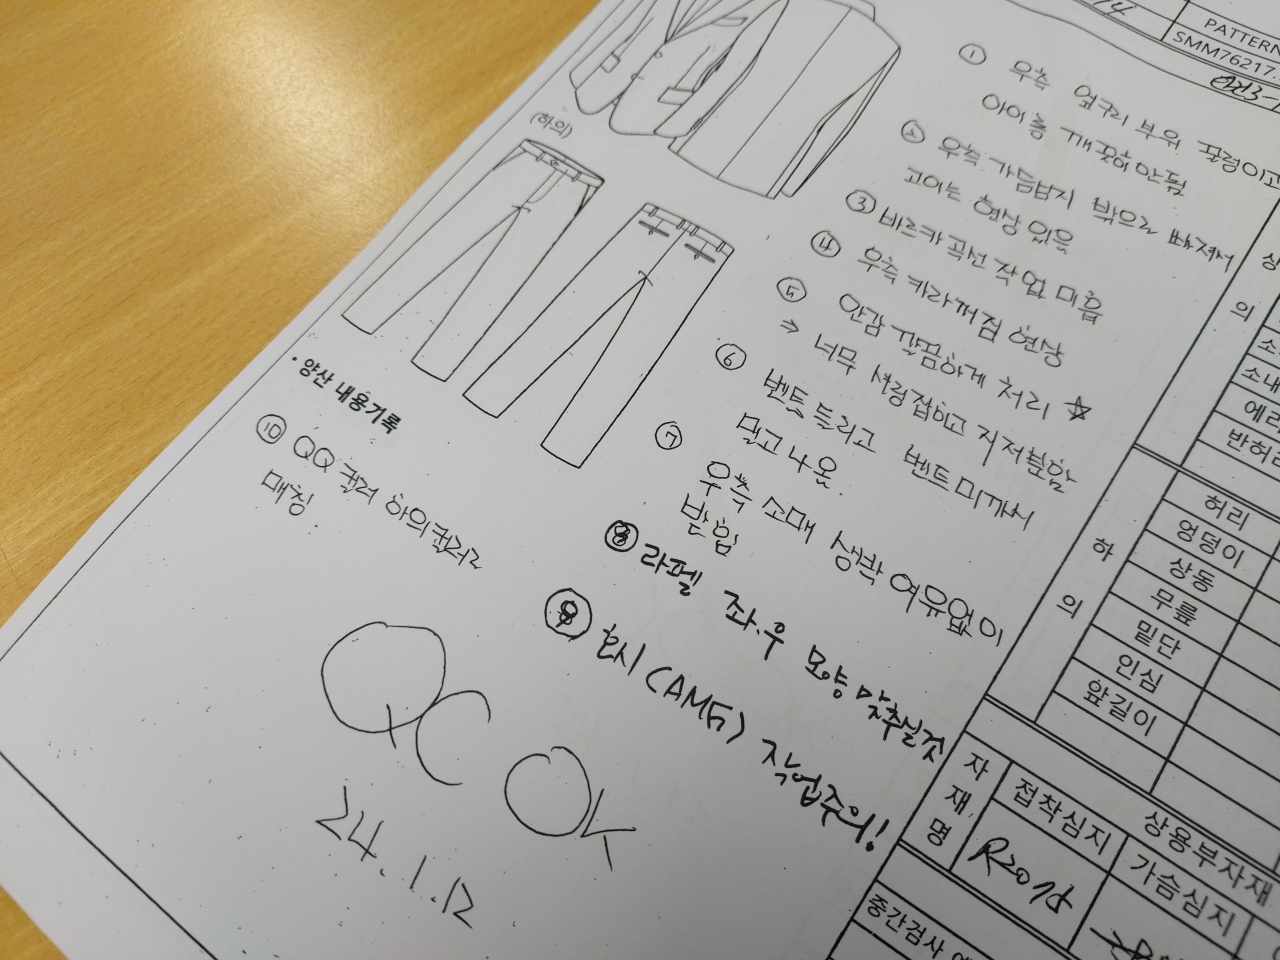 PATTERN
SMM76217.
(하의)
① 우측 옆구리 부위 꿀렁이고
아이롱 깨끗이 안됨
② 우측 가슴받지 밖으로 빠져서
고이는 현상 있음
③ 비르카 곡선 작업 미흡
④ 우측 카라꺼짐 현상
⑤ 안감 깔끔하게 처리 ☆
⇒ 너무 사랑잡이고 지저분함
⑥ 벤트 들리고 벤트 미까시
말고 나옴.
⑦ 우측 소매 생박 여유없이
박임
⑧ 라펠 좌.우 모양 맞추실것
⑨ 호시(AMF) 작업주의!
• 양산 내용기록
⑩ QQ 컬러 하의컬러로
매칭.
QC OK
24.1.12
상
의
하
의
허리
엉덩이
상동
무릎
밑단
인심
앞길이
자
재
명
접착심지
상용부자재
가슴심지
중간검사